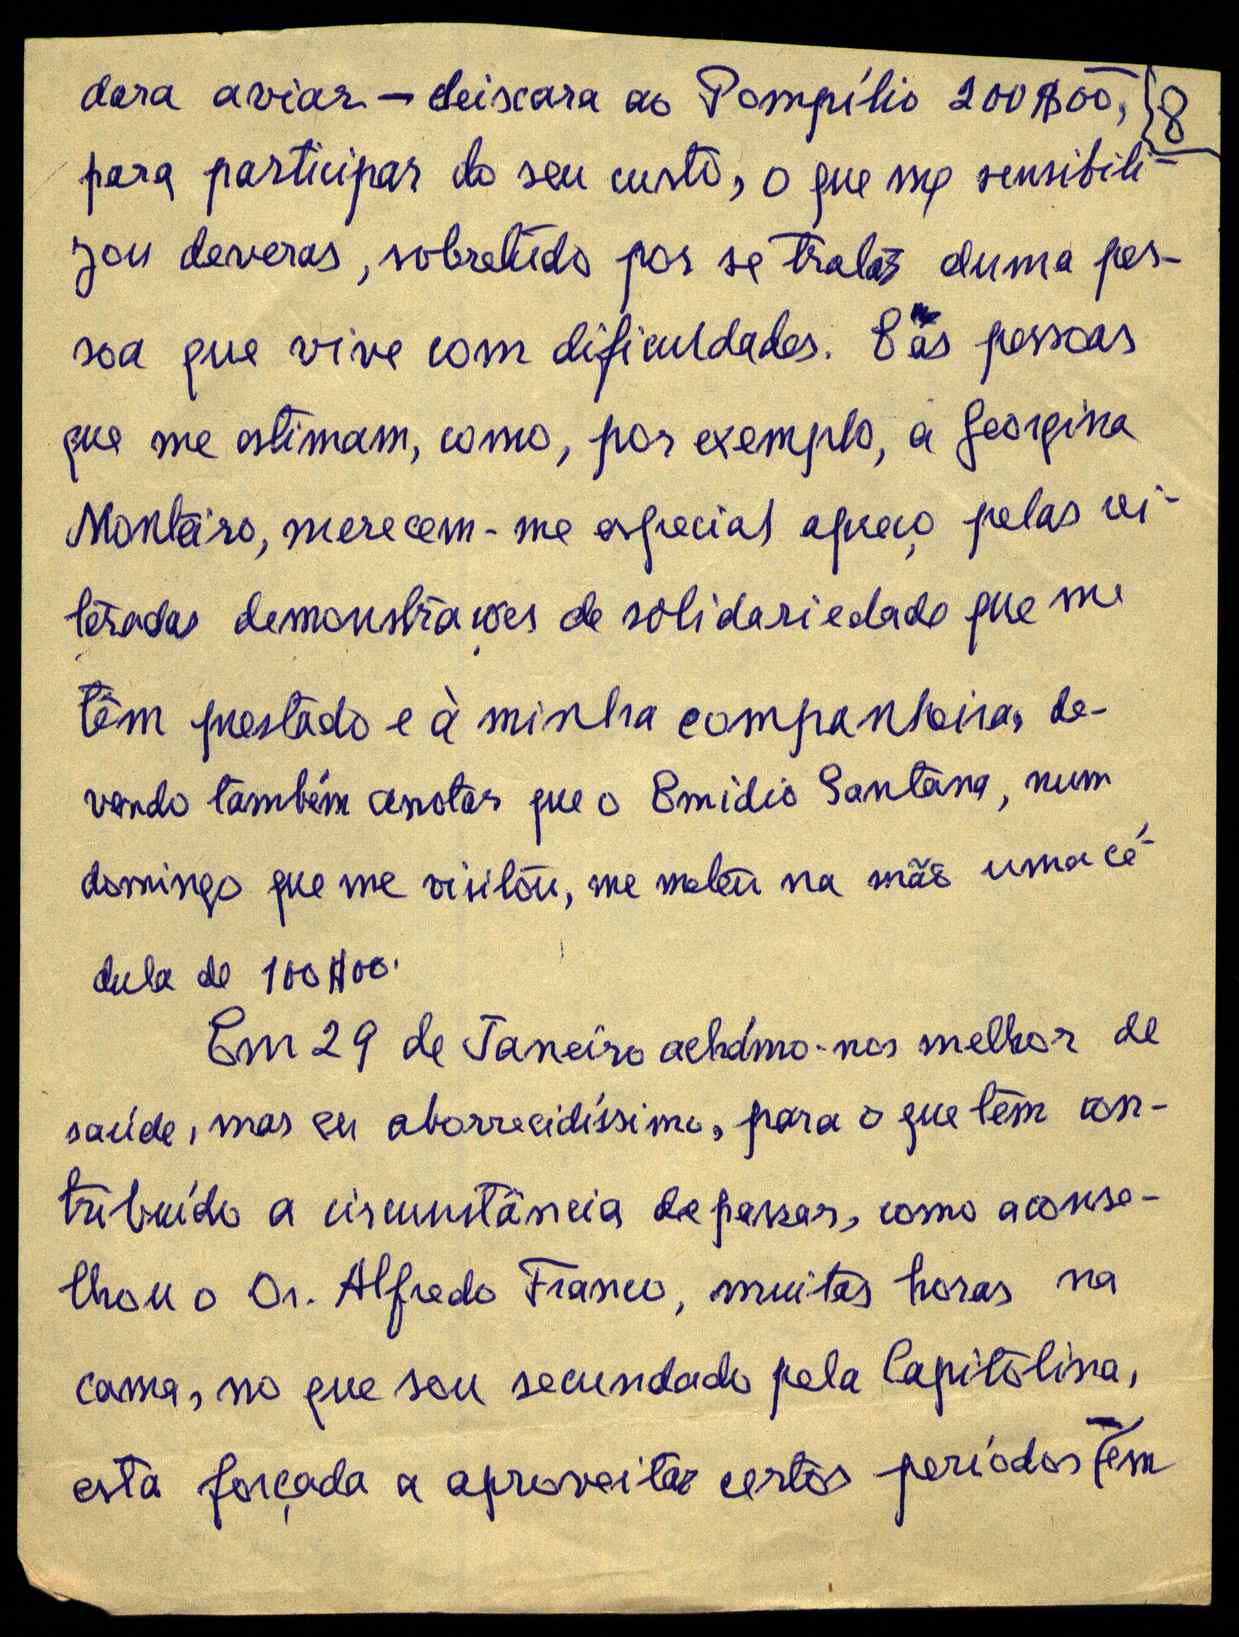 dara aviar — deixara ao Pompílio 200$00, 8
para participar do seu custo, o que me sensibili-
zou deveras, sobretudo por se tratar duma pes-
soa que vive com dificuldades. E as pessoas
que me estimam, como, por exemplo, a Georgina
Monteiro, merecem-me especial apreço pelas rei-
teradas demonstrações de solidariedade que me
têm prestado e à minha companheira, de-
vendo também anotar que o Emídio Santana, num
domingo que me visitou, me meteu na mão uma cé-
dula de 100$00.
Em 29 de Janeiro achámo-nos melhor de
saúde, mas eu aborrecidíssimo, para o que têm con-
tribuído a circunstância de passar, como aconse-
lhou o Dr. Alfredo Franco, muitas horas na
cama, no que sou secundado pela Capitolina,
esta forçada a aproveitar certos períodos em